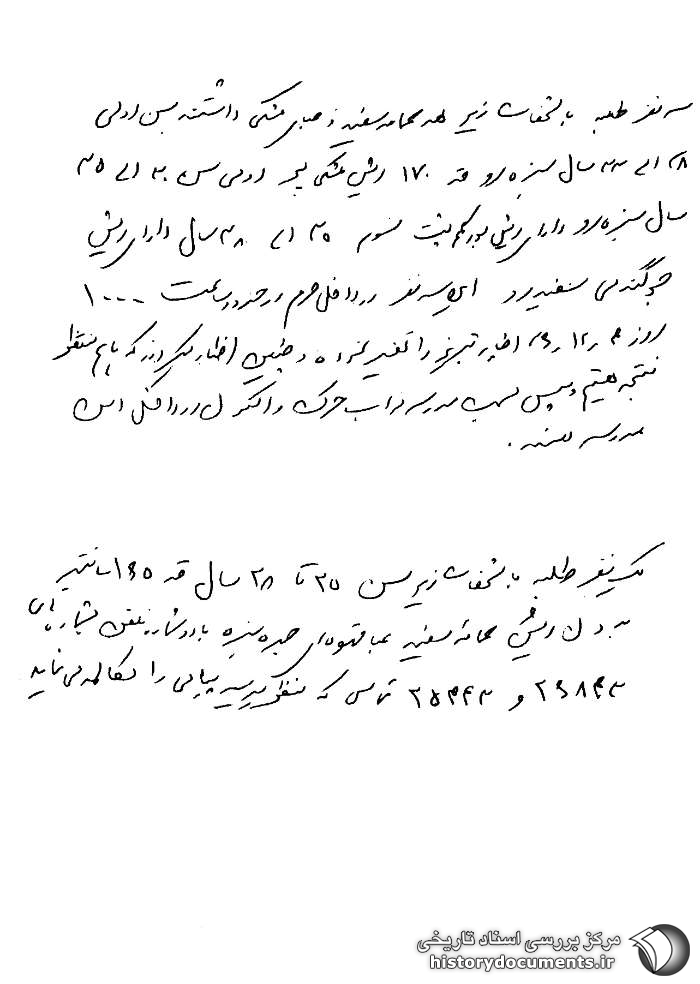 سه نفر طلبه با مشخصات زیر هر سه عمامه سفید و عبای مشکی داشتند سن اولی
۲۸ الی سال سبزه رو قد ۱۷۰ ریش مشکی دومی سن ۳۰ الی ۳۵
سال سبزه رو دارای ریش بور کم پشت سوم ۳۵ الی ۳۸ سال دارای ریش
جوگندمی سفید رو این سه نفر در داخل حرم در حدود ساعت ۱۰۰۰
روز اخبار تبریز را تفسیر نموده و چنین اظهار که ما هم منتظر
نتیجه هستیم و سپس بسمت مدرسه نواب حرکت و در داخل این
مدرسه هستند.
یک نفر طلبه با مشخصات زیر سن ۳۵ تا ۳۸ سال قد ۱۶۵ سانتیمتر
بدون ریش عمامه سفید عبا قهوه‌ای چهره سبزه با دو شماره تلفن بشماره‌های
۲۶۸۴۳ و ۲۵۴۴۳ تماس که پیامی را مکالمه می‌نماید
مرکز بررسی اسناد تاریخی
historydocuments.ir